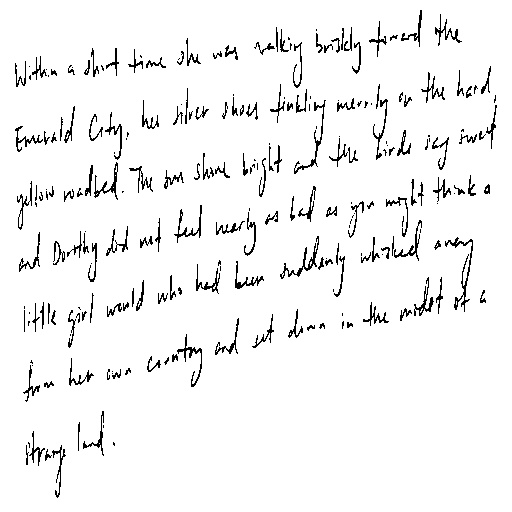 Within a short time she was walking briskly toward the
Emerald City, her silver shoes tinkling merrily on the hard,
yellow roadbed. The sun shone bright and the birds sang sweet
and Dorothy did not feel nearly as bad as you might think a
little girl would who had been suddenly whisked away
from her own country and set down in the midst of a
strange land.